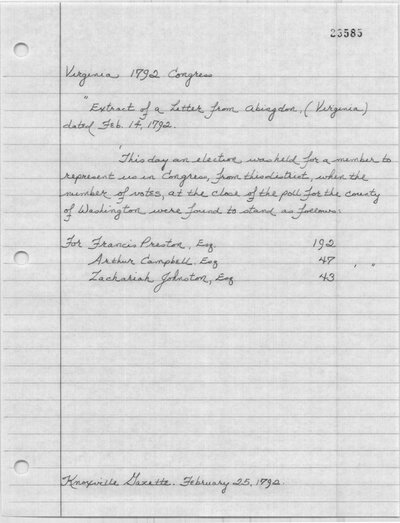 23585
Virginia 1792 Congress
"Extract of a Letter from Abingdon, (Virginia)
dated Feb. 14, 1792.
'This day an election was held for a member to
represent us in Congress, from this district, when the
number of votes, at the close of the poll for the county
of Washington were found to stand as follows:
For Francis Preston, Esq 192
Arthur Campbell, Esq 47 , "
Zachariah Johnston, Esq 43
Knoxville Gazette. February 25, 1792.